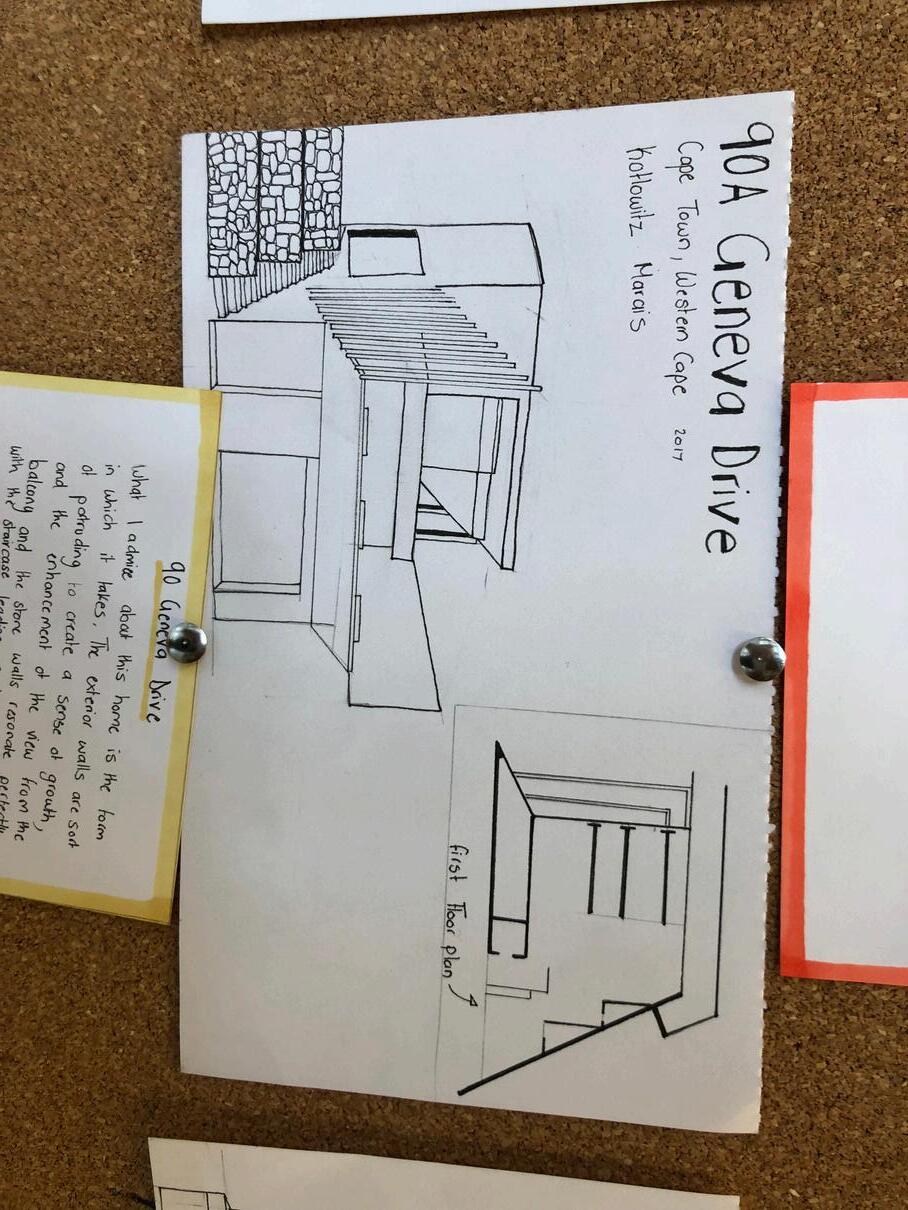 90A Geneva Drive
Cape Town, Western Cape 2017
Kotlowitz Marais
first floor plan
90 Geneva Drive
What I admire about this home is the form
in which it takes. The exterior walls are sort
of potruding to create a sense of growth,
and the enhancement of the view from the
balcony and the stone walls resonate perfectly
with the staircase leading